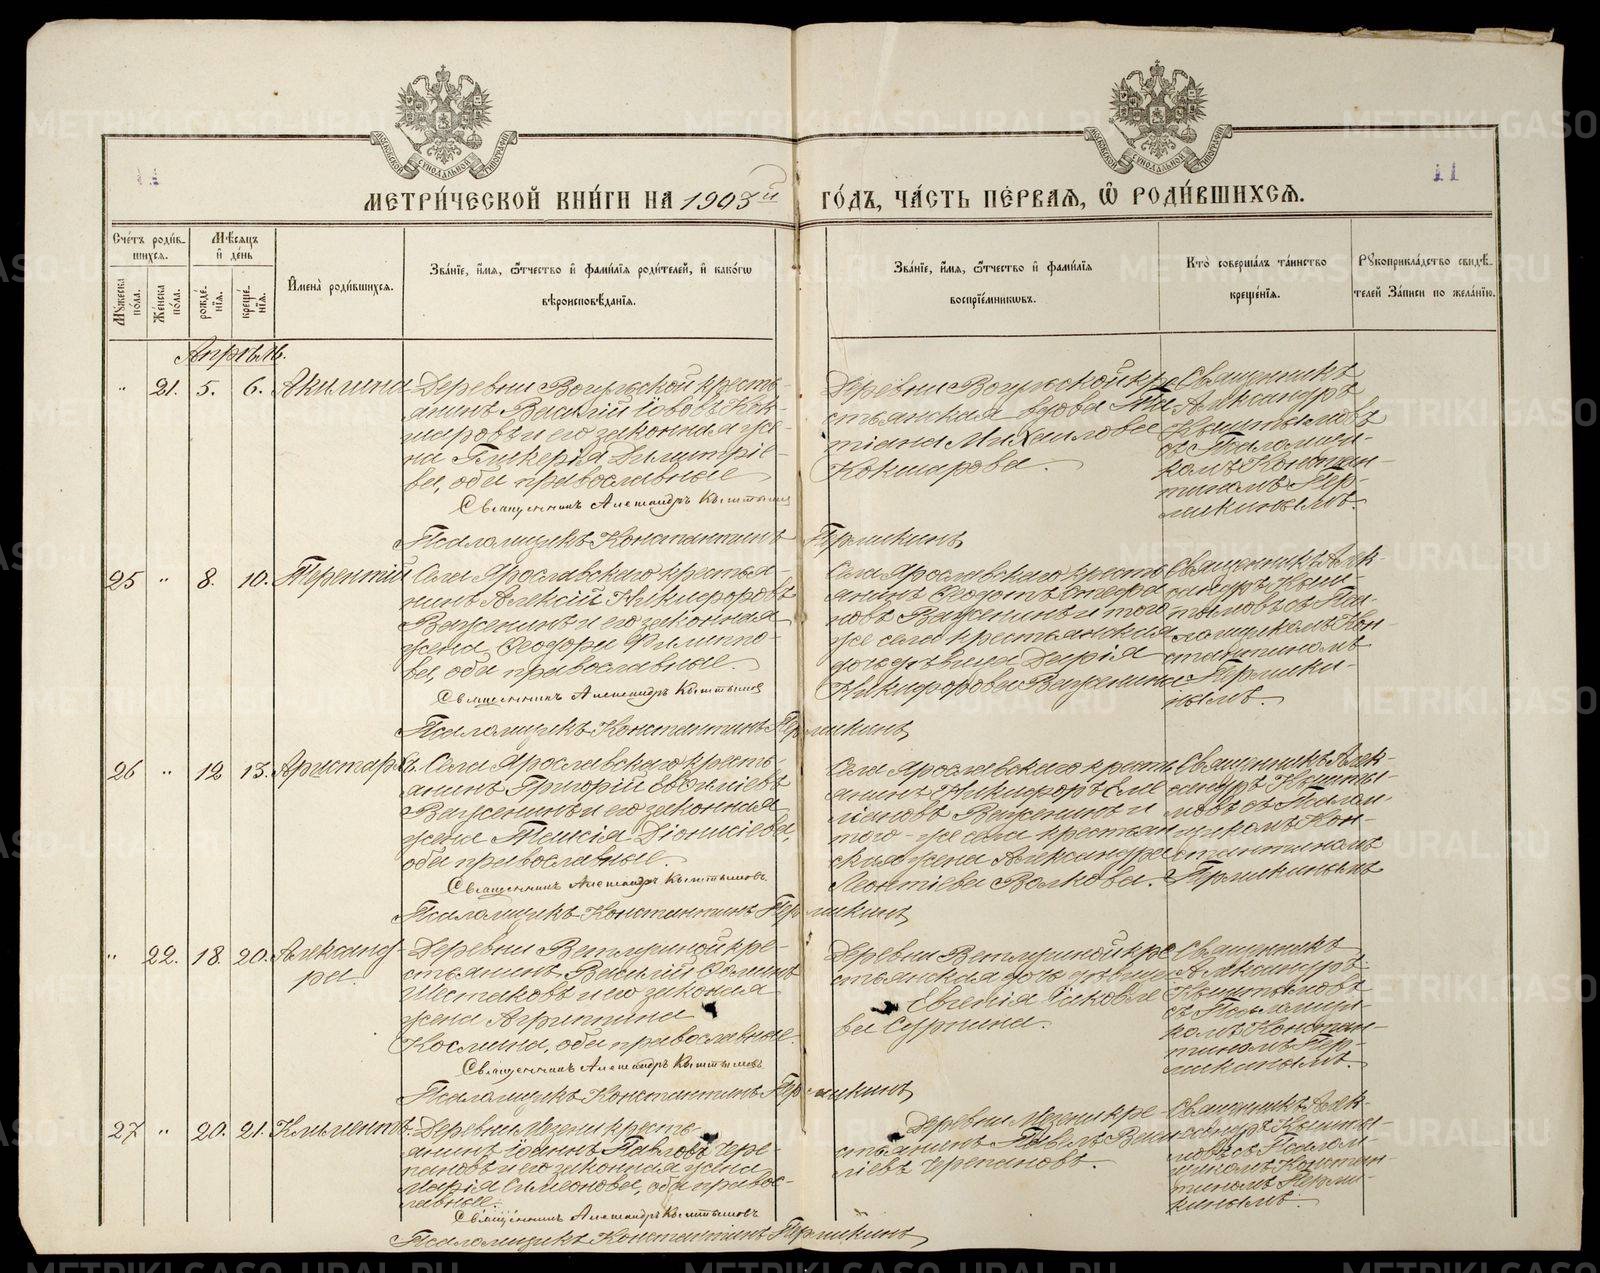 МОСКОВСКОЙ СѴНОДАЛЬНОЙ ТИПОГРАФІИ
МОСКОВСКОЙ СѴНОДАЛЬНОЙ ТИПОГРАФІИ
11
11
МЕТРИ́ЧЕСКОЙ КНИ́ГИ НА 1903й ГО́ДЪ, ЧА́СТЬ ПЕ́РВАѦ, Ѽ РОДИ́ВШИХСѦ.
Сче́тъ роди́в-
шихся.
Мѣ́сяцъ
и҆ де́нь
Мꙋ́жеска по́ла.
Же́нска по́ла.
рожде́нїя.
креще́нїя.
И҆мена̀ роди́вшихся.
Зва́нїе, и҆́мя, ѻ҆́тчество и҆ фами́лїя роди́телей, и҆ како́гѡ
вѣроисповѣ́данїя.
Зва́нїе, и҆́мя, ѻ҆́тчество и҆ фами́лїя
воспрїе́мникѡвъ.
Кто̀ соверша́лъ та́инство
креще́нїя.
Рꙋкоприкла́дство свидѣ́-
телей За́писи по жела́нїю.
Апрѣль.
" 21. 5. 6. Акилина
Деревни Вогульской кресть-
янинъ Василій Іововъ Кок-
шаровъ и его законная же-
на Гликерія Димитріе-
ва, оба православные
Священникъ Александръ Кыштымовъ
Псаломщикъ Константинъ Пермикинъ
Деревни Вогульской кре-
стьянская вдова Та-
тіана Михаилова
Кокшарова.
Священникъ
Александръ
Кыштымовъ
съ Псаломщи-
комъ Констан-
тиномъ Пер-
микинымъ.
25 " 8. 10. Терентій
Села Ярославскаго крестья-
нинъ Алексій Никифоровъ
Важенинъ и его законная
жена Ѳеодора Филиппо-
ва, оба православные.
Священникъ Александръ Кыштымовъ
Псаломщикъ Константинъ Пермикинъ
Села Ярославскаго кресть
янинъ Ѳеодотъ
новъ Важенинъ и того
же села крестьянская
дочь дѣвица Дарія
Никифорова Важенина
Священникъ Алек-
сандръ Кыш-
тымовъ съ Пса-
ломщикомъ Кон-
стантиномъ
Пермики-
нымъ.
26 " 12 13. Аристархъ.
Села Ярославскаго кресть-
янинъ Григорій Евфиміевъ
Важенинъ и его законная
жена Таисія Діонисіева,
оба православные.
Священникъ Александръ Кыштымовъ
Псаломщикъ Константинъ Пермикинъ
Села Ярославскаго кресть
янинъ Никифоръ Еме
ліановъ Важенинъ и
того-же села крестьян
ская жена Александра
Леонтіева Волкова.
Священникъ Алек-
сандръ Кышты-
мовъ съ Псалом-
щикомъ Кон-
стантиномъ
Пермикинымъ
" 22. 18. 20. Александ-
ра.
Деревни Ветлугиной кре-
стьянинъ Василій
Шестаковъ и его законная
жена Агрипина
Космина, оба православные.
Священникъ Александръ Кыштымовъ
Псаломщикъ Константинъ Пермикинъ
Деревни Ветлугиной кре
стьянская дочь дѣвица
Евгенія Іаковле
ва Сурнина.
Священникъ
Александръ
Кыштымовъ
съ Псаломщи-
комъ Констан-
тиномъ Пер-
микинымъ.
27 " 20. 21. Климентъ.
Деревни Мезени кресть-
янинъ Іоаннъ Павловъ Чере-
пановъ и его законная жена
Марія Симеонова, оба правос-
лавные.
Священникъ Александръ Кыштымовъ
Псаломщикъ Константинъ Пермикинъ
Деревни Мезени кре-
стьянинъ Павелъ Васи
ліевъ Черепановъ.
Священникъ Алек-
сандръ Кышты-
мовъ съ Псалом-
щикомъ Констан-
тиномъ Перми-
кинымъ.
METRIKI.GASO-URAL.RU